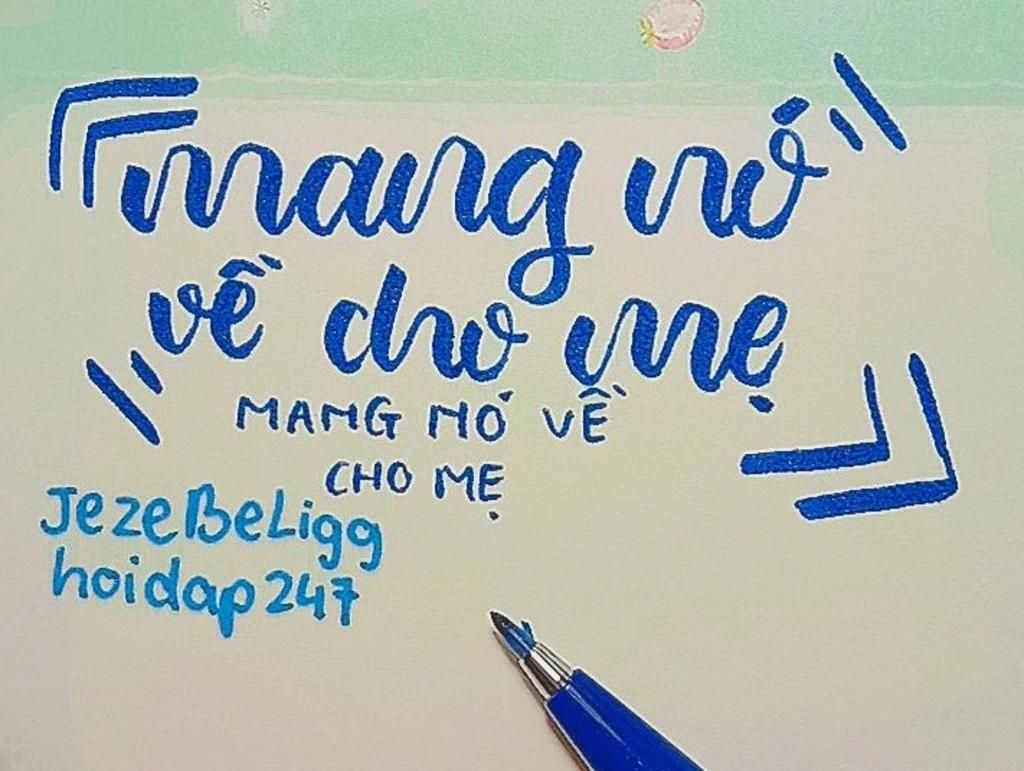 mang nó
về cho mẹ
MANG NÓ VỀ
CHO MẸ
JezeBeLigg
hoidap247